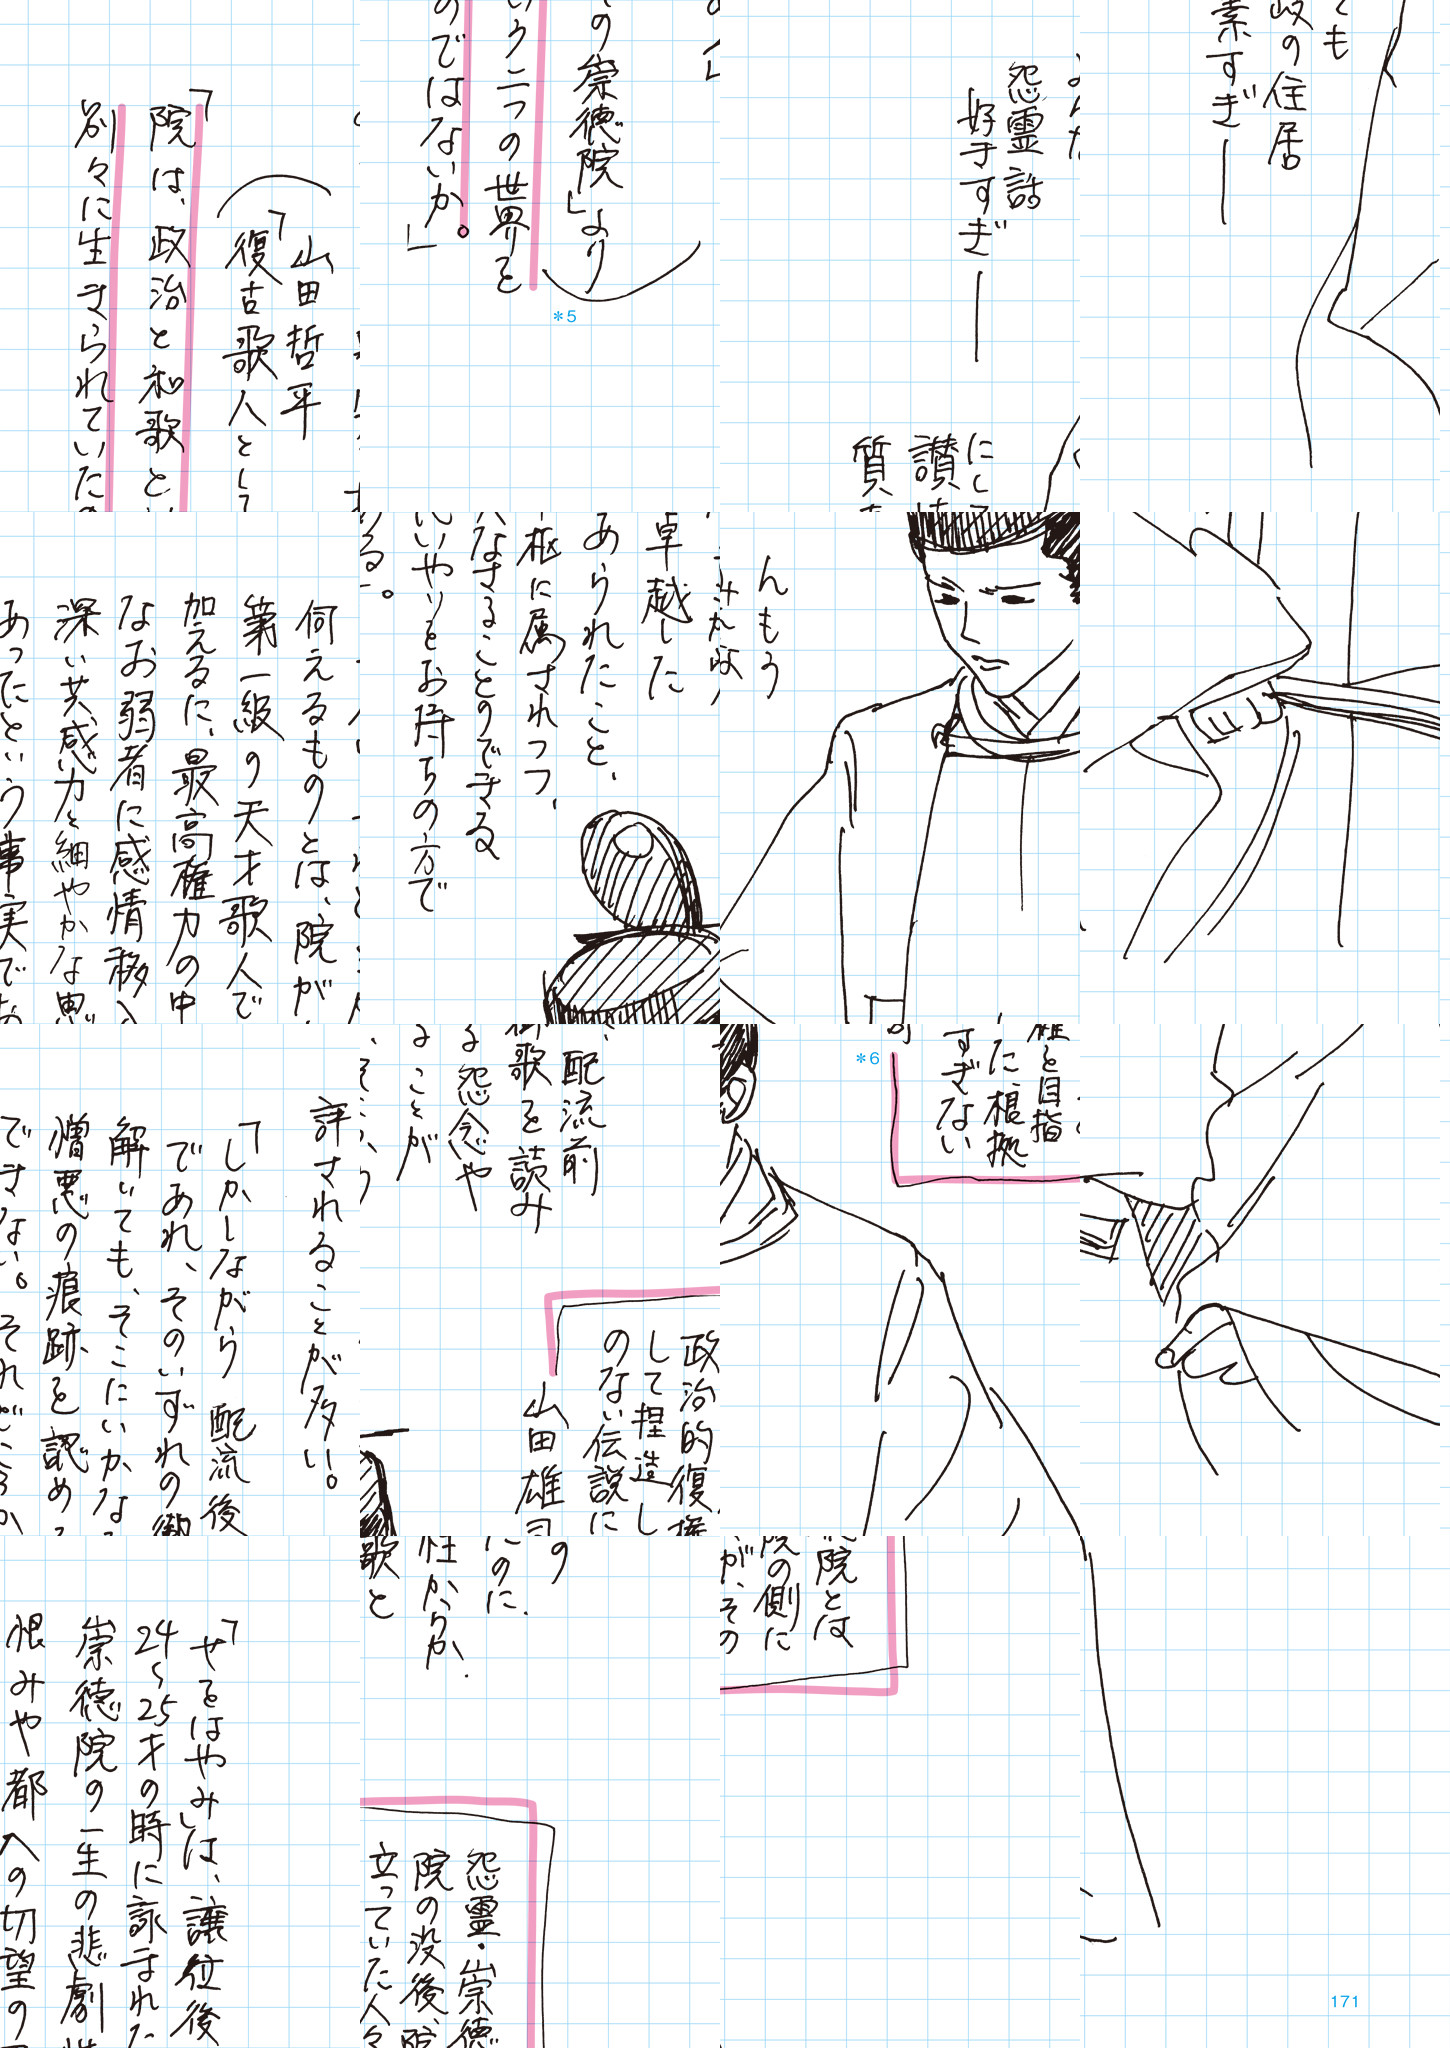 山田哲平
「復古歌人として
「院は、政治と和歌と
別々に生きられていた
の崇徳院」より
いう二つの世界を
のではないか。」
*5
怨霊話
好きすぎ―
にして
讃
質
ても
岐の住居
素すぎ―
伺えるものとは、院が
第一級の天才歌人で
加えるに、最高権力の中
なお弱者に感情移入
深い共感力と細やかな思
あったという事実で
卓越した
あられたこと、
枢に属されつつ、
なさることのできる
いやりをお持ちの方で
る。
んもう
評されることが多い。
「しかしながら配流後
であれ、そのいずれの御
解いても、そこにいかな
憎悪の痕跡を認める
できない。それどころか
配流前
御歌を読み
る怨念や
ことが
政治的復権
して捏造し
のない伝説に
山田雄司
*6
権を目指
に、根拠
すぎない
「せをはやみ」は、譲位後
24〜25才の時に詠まれた
崇徳院の一生の悲劇性
恨みや都への切望の
の
のに、
性からか、
歌と
怨霊・崇徳
院の没後、院
立っていた人々
院とは
院の側に
が、その
171